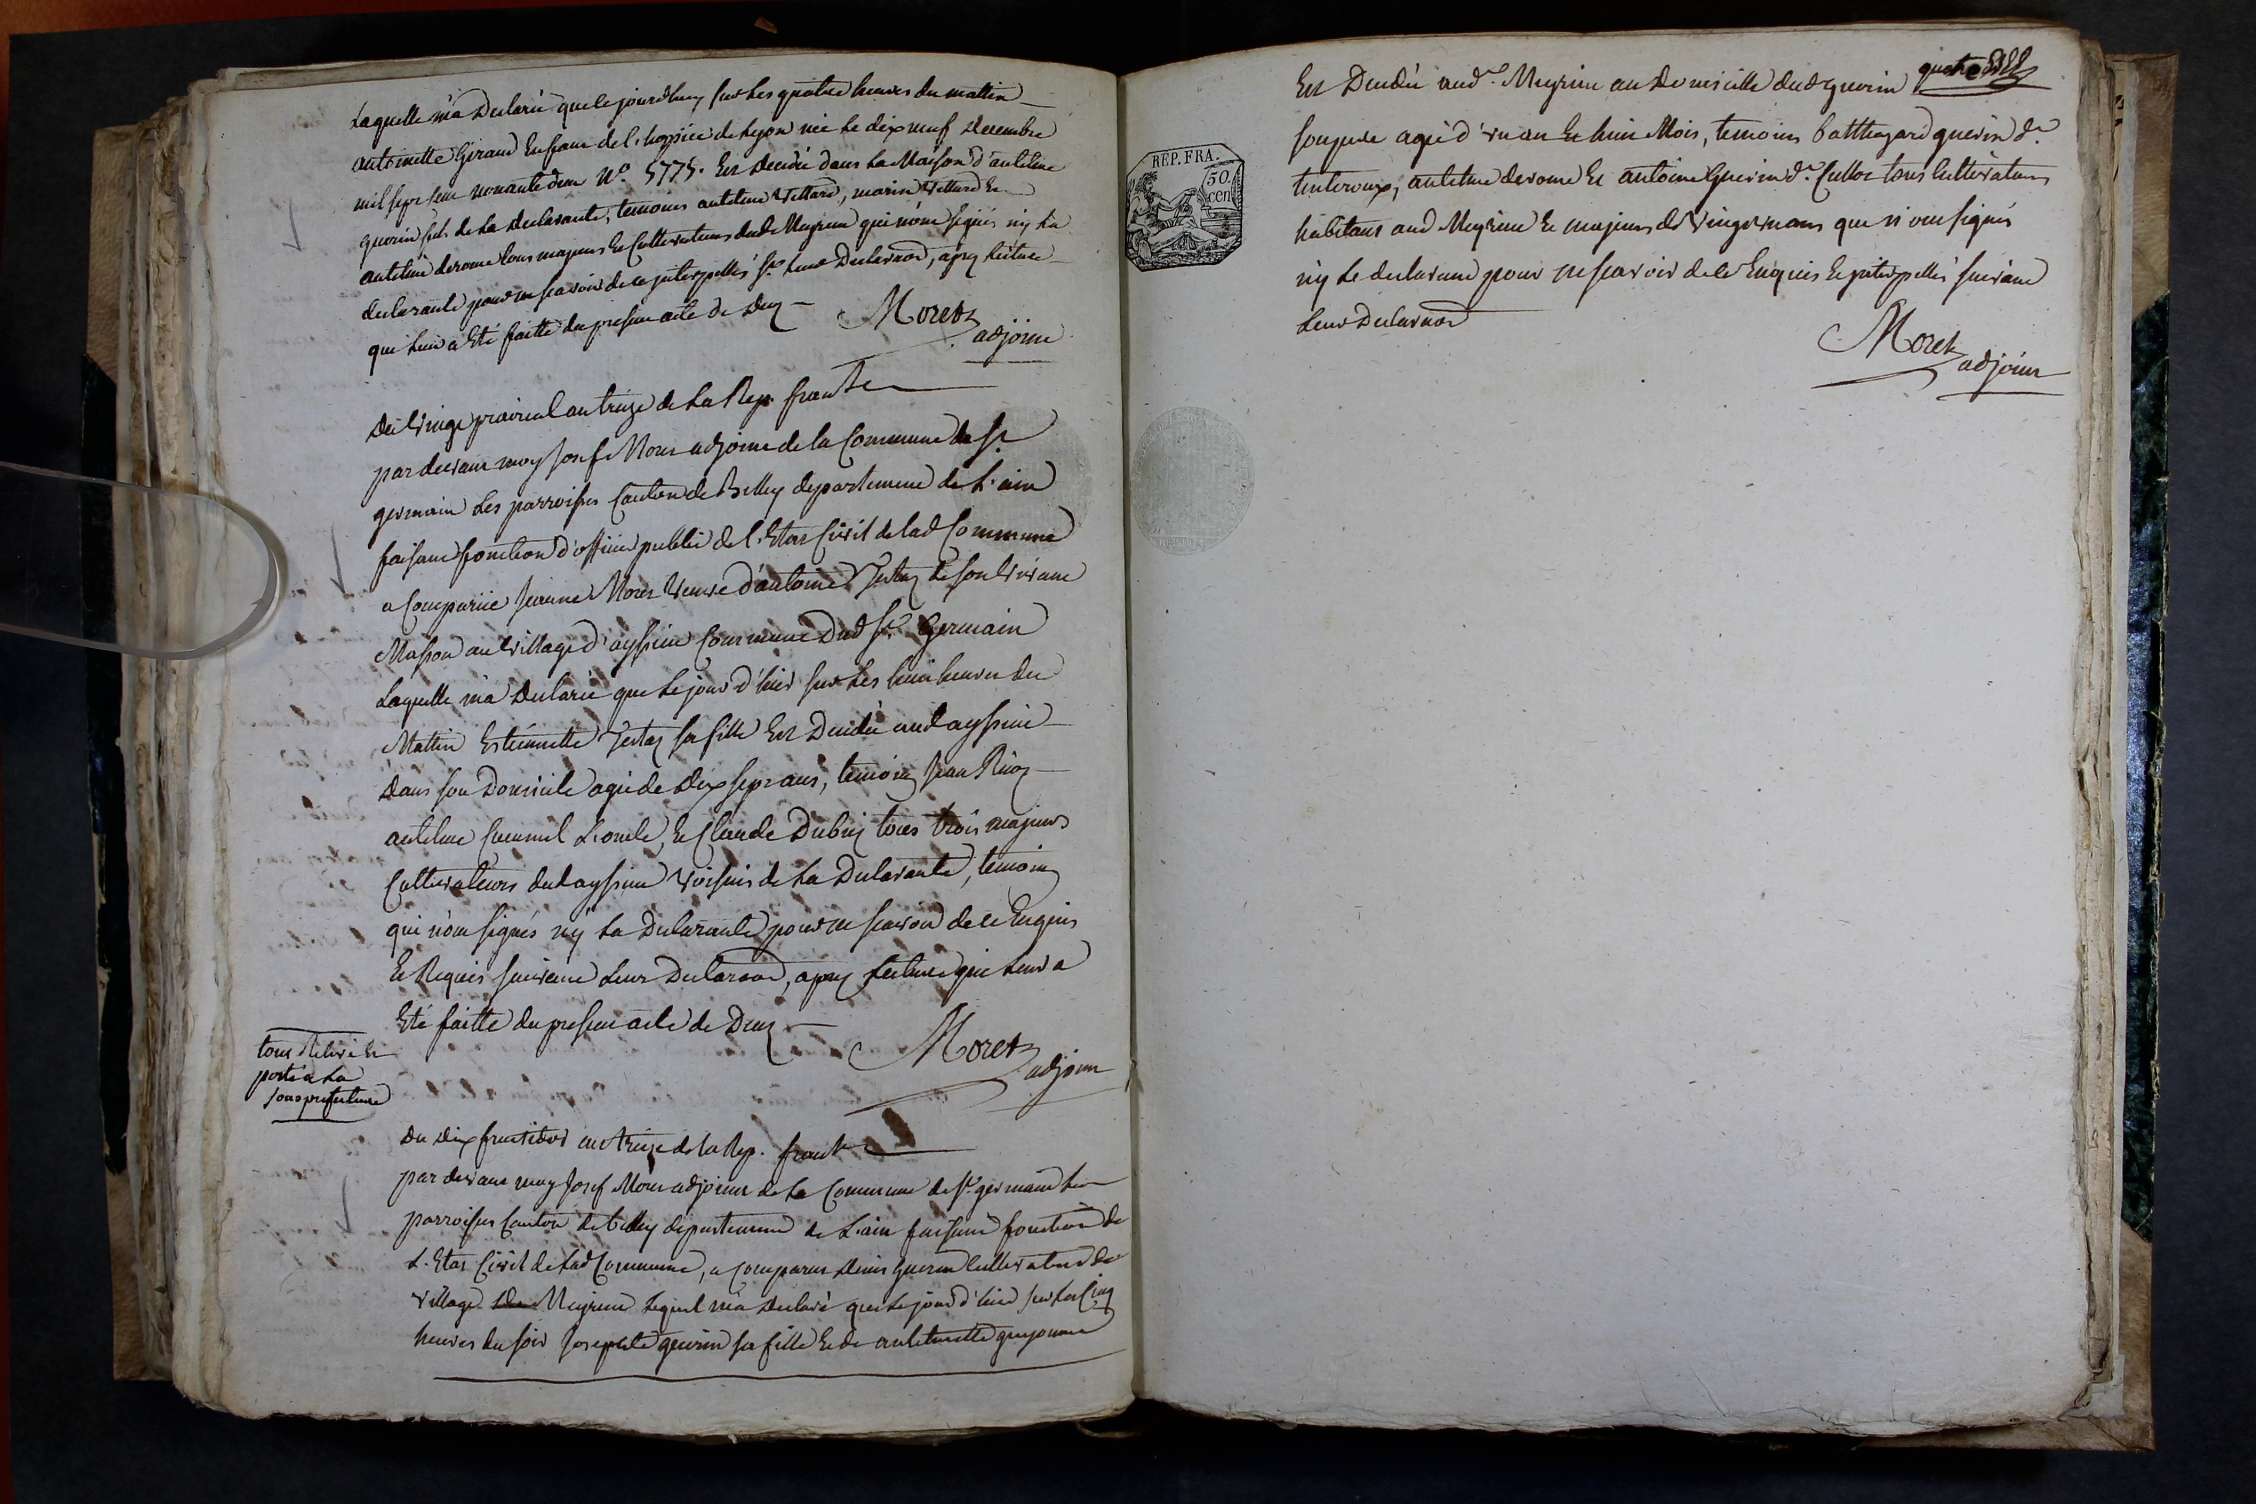 Laquelle m'a Declaré que le jourd'huy sur les quatre heures du mattin
antoinette Giraud Enfant de l'hospice de Lyon née le dix neuf Decembre
mil sept cent nonante deux N.o 5775. Est decedée dans la Maison d'antelme
guerin fils de la declarante, temoins antelme Vettard, marin Vettard Et
antelme derome tous majeurs Et Cultivateurs dud Meyrieu qui n'ont signés ny la
declarante pour ne scavoir de ce interpellés st leur Declaraon, après lecture
qui leur a Eté faitte du present acte de Deces
Moret adjoint
Du Vingt prairial an treize de la Rep. franse
par devant moy Josef Moret adjoint de la Commune de St
germain les parroisses Canton de Belley departement de L'ain
faisant fonction d'officier public de l'Etat Civil de lad Commune
a Comparue Jeanne Moret Veuve d'antoine de son vivant
Masson au Village d'ayssieu Commune dud St Germain
Laquelle m'a declaré que le jour d'hier sur les huit heures du
Mattin Estiennette sa fille Est Decedée aud ayssieu
dans son Domicile agée de dix sept ans, temoins Jean
antelme et Claude Dubuy tous trois majeurs
Cultivateurs dud ayssieu voisins de la Declarante, temoins
qui n'ont signés ny la Declarante pour ne scavoir de ce Enquis
Et Requis suivant leur Declaraon, après lecture qui leur a
Eté faitte du present acte de Deces
Moret adjoint
tout Relevé Et
porté a la
sousprefecture
Du dix fructidor an treize de la Rep. franse
par devant moy Josef Moret adjoint de la Commune de St germain les
parroisses Canton de belley departement de L'ain faisant fonction de
L'Etat Civil de lad Commune, a comparu Denis guerin Cultivateur du
Village de Meyrieu lequel m'a declaré que le jour d'hier sur les Cinq
heures du soir Josephte guerin sa fille Et de antelmette guyonnet
quatre
REP. FRA.
50.
cen
Est Decedée aud. Meyrieu au Domicille dud guerin
son pere agée d'un an Et huit Mois, temoins balthazard guerin dt
antelme derome Et antoine Guerin dt tous Cultivateurs
habitans aud Meyrieu Et majeurs de Vingt un ans qui n'ont signés
ny le declarant pour ne scavoir de ce Enquis Et interpellés suivant
leur Declaraon
Moret adjoint